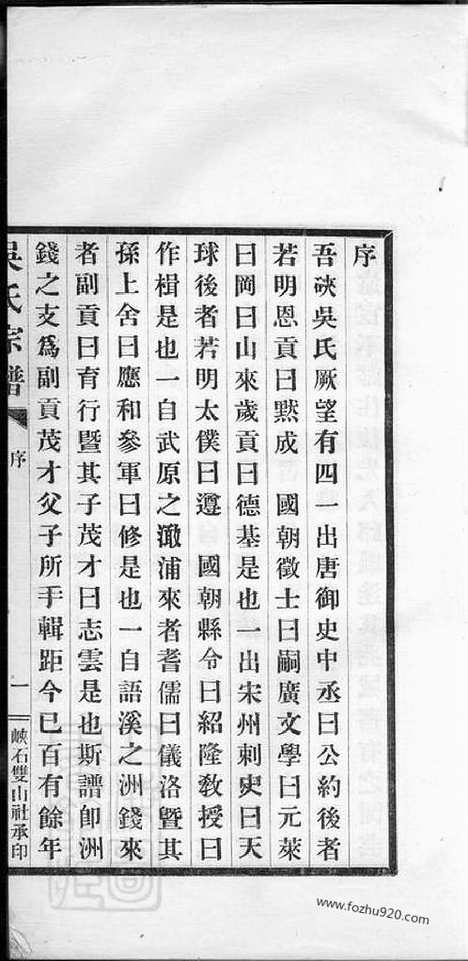 序
吾硤吳氏厥望有四一出唐御史中丞曰公約後者
若明恩貢曰黙成　國朝徵士曰嗣廣文學曰元萊
曰岡曰山來歲貢曰德基是也一出宋州刺史曰天
球後者若明太僕曰遵　國朝縣令曰紹隆教授曰
作楫是也一自武原之澉浦來者耆儒曰儀洛暨其
孫上舍曰應和參軍曰修是也一自語溪之洲錢來
者副貢曰育行暨其子茂才曰志雲是也斯譜卽洲
錢之支爲副貢茂才父子所手輯距今已百有餘年
吳氏宗譜
序
一
峽石雙山社承印
www.fozhu920.com